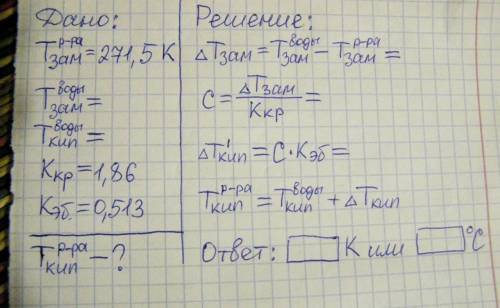 Дано:
T зам р-ра = 271,5 К
T зам воды =
T кип воды =
Kкр = 1,86
Kэб. = 0,513
T кип р-ра - ?
Решение:
△Tзам = T зам воды - T зам р-ра =
C = △Tзам / Kкр =
△T'кип = C · Kэб =
T кип р-ра = T кип воды + △Tкип
Ответ: □ К или □ °C